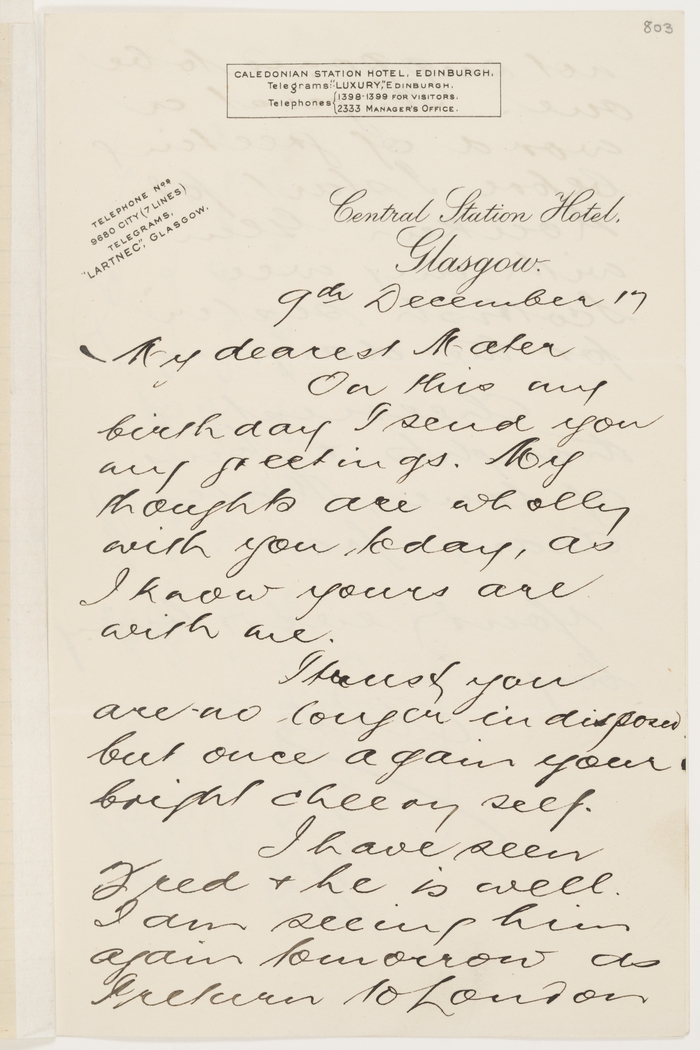 803
CALEDONIAN STATION HOTEL, EDINBURGH.
Telegrams: "LUXURY," EDINBURGH.
Telephones { 1398-1399 FOR VISITORS.
2333 MANAGER'S OFFICE.
TELEPHONE Nos
9680 CITY (7 LINES)
TELEGRAMS,
"LARTNEC", GLASGOW.
Central Station Hotel,
Glasgow.
9th December 17
My dearest Mater
On this my
birthday I send you
my greetings. My
thoughts are wholly
with you today, as
I know yours are
with me.
I trust you
are no longer indisposed
but once again your
bright cheery self.
I have seen
Fred + he is well.
I am seeing him
again tomorrow as
I return to London